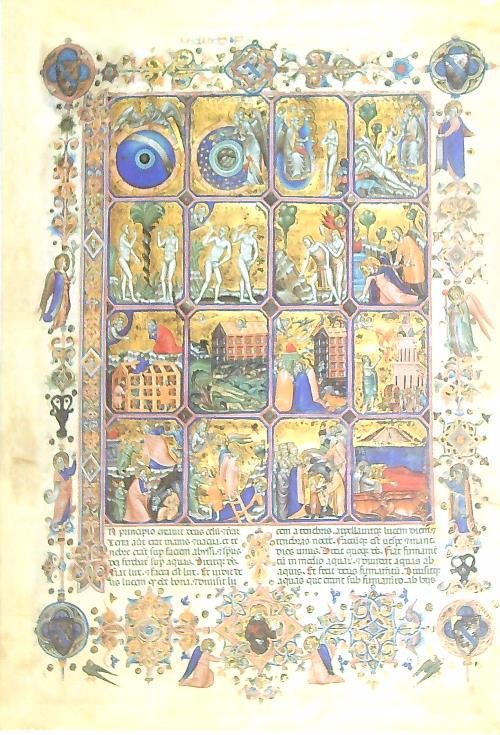 In principio creavit deus celū ⁊ ter
erat inanis ⁊ vacua. et te
nebre erāt sup faciem abyssi. ⁊ spūs
ferebat sup aquas. Dixitqȝ dˢ.
Fiat lux. ⁊ facta est lux. Et vidit de
us lucem qȝ eēt bona. ⁊ divisit lu
cem a tenebris. appellavitqȝ lucem diem ⁊
tenebras noctē. Factūqȝ est vespe ⁊ mane
dies unus. Dixit quoqȝ dˢ. Fiat firmamē
tū in medio aquaꝝ. ⁊ dividat aquas ab
aquis. Et fecit deus firmamētū. Divisitqȝ
aquas que erant sub firmamēto ab